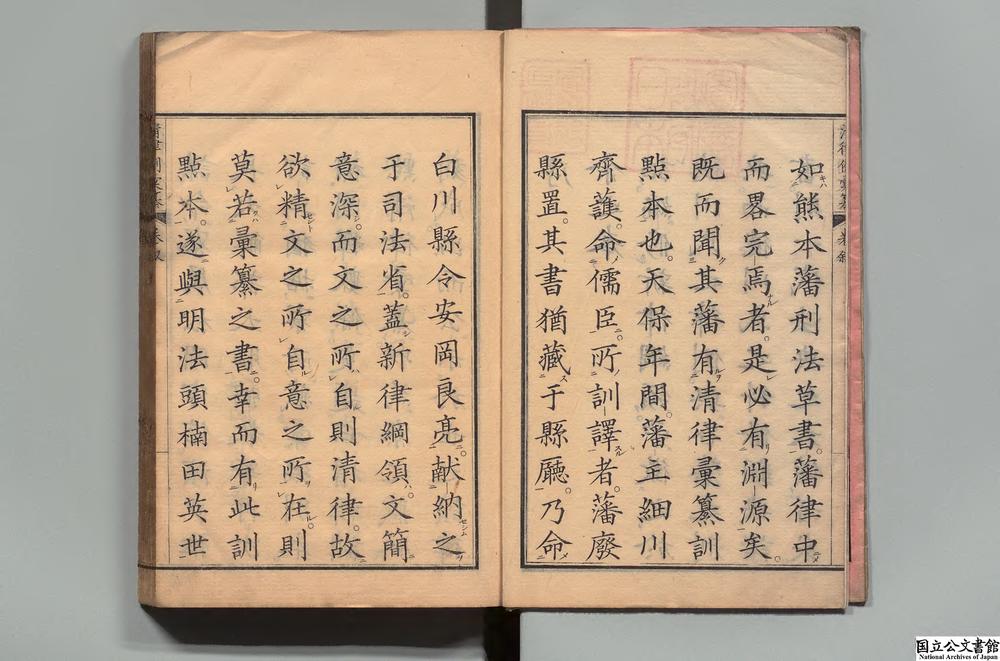 如熊本藩刑法草書。藩律中
而畧完焉者。是必有淵源矣。
既而聞其藩有清律彙纂訓
點本也。天保年間。藩主細川
齊護。命儒臣。所訓譯者。藩廢
縣置。其書猶藏于縣廳。乃命
白川縣令安岡良亮。献納之
于司法省。蓋新律綱領。文簡
意深。而文之所自則清律。故
欲精文之所自意之所在。則
莫若彙纂之書。幸而有此訓
點本。遂與明法頭楠田英世
国立公文書館
National Archives of Japan